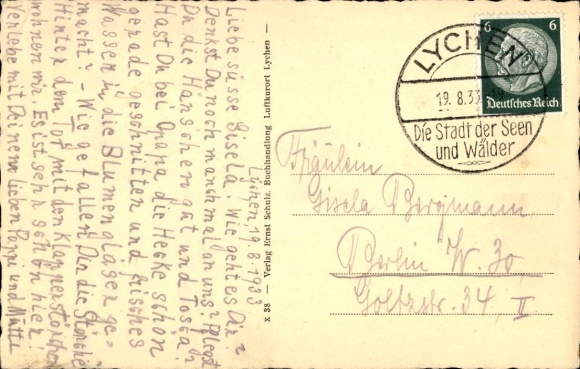 Lychen, 19.8.1933
Liebe süsse Gisela! Wie geht es Dir?
Denkst Du noch manchmal an uns? Pflegst
Du die Hänschen gut und Tosca?
Hast Du bei Opapa die Hecke schön
gerade geschnitten und frisches
Wasser in die Blumengläser ge-
macht? - Wie gefallen Dir die Störche
Hinter dem Tor mit den Klapperstörchen
wohnen wir. Es ist sehr schön hier!
Verlebe mit Deinem lieben Pappi und Mutti
X 38 — Verlag Ernst Schulz, Buchhandlung Luftkurort Lychen —
6 6
Deutsches Reich
LYCHEN
19.8.33
Die Stadt der Seen
und Wälder
Fräulein
Gisela Bergmann,
Berlin W. 30,
Goltzstr. 34, II